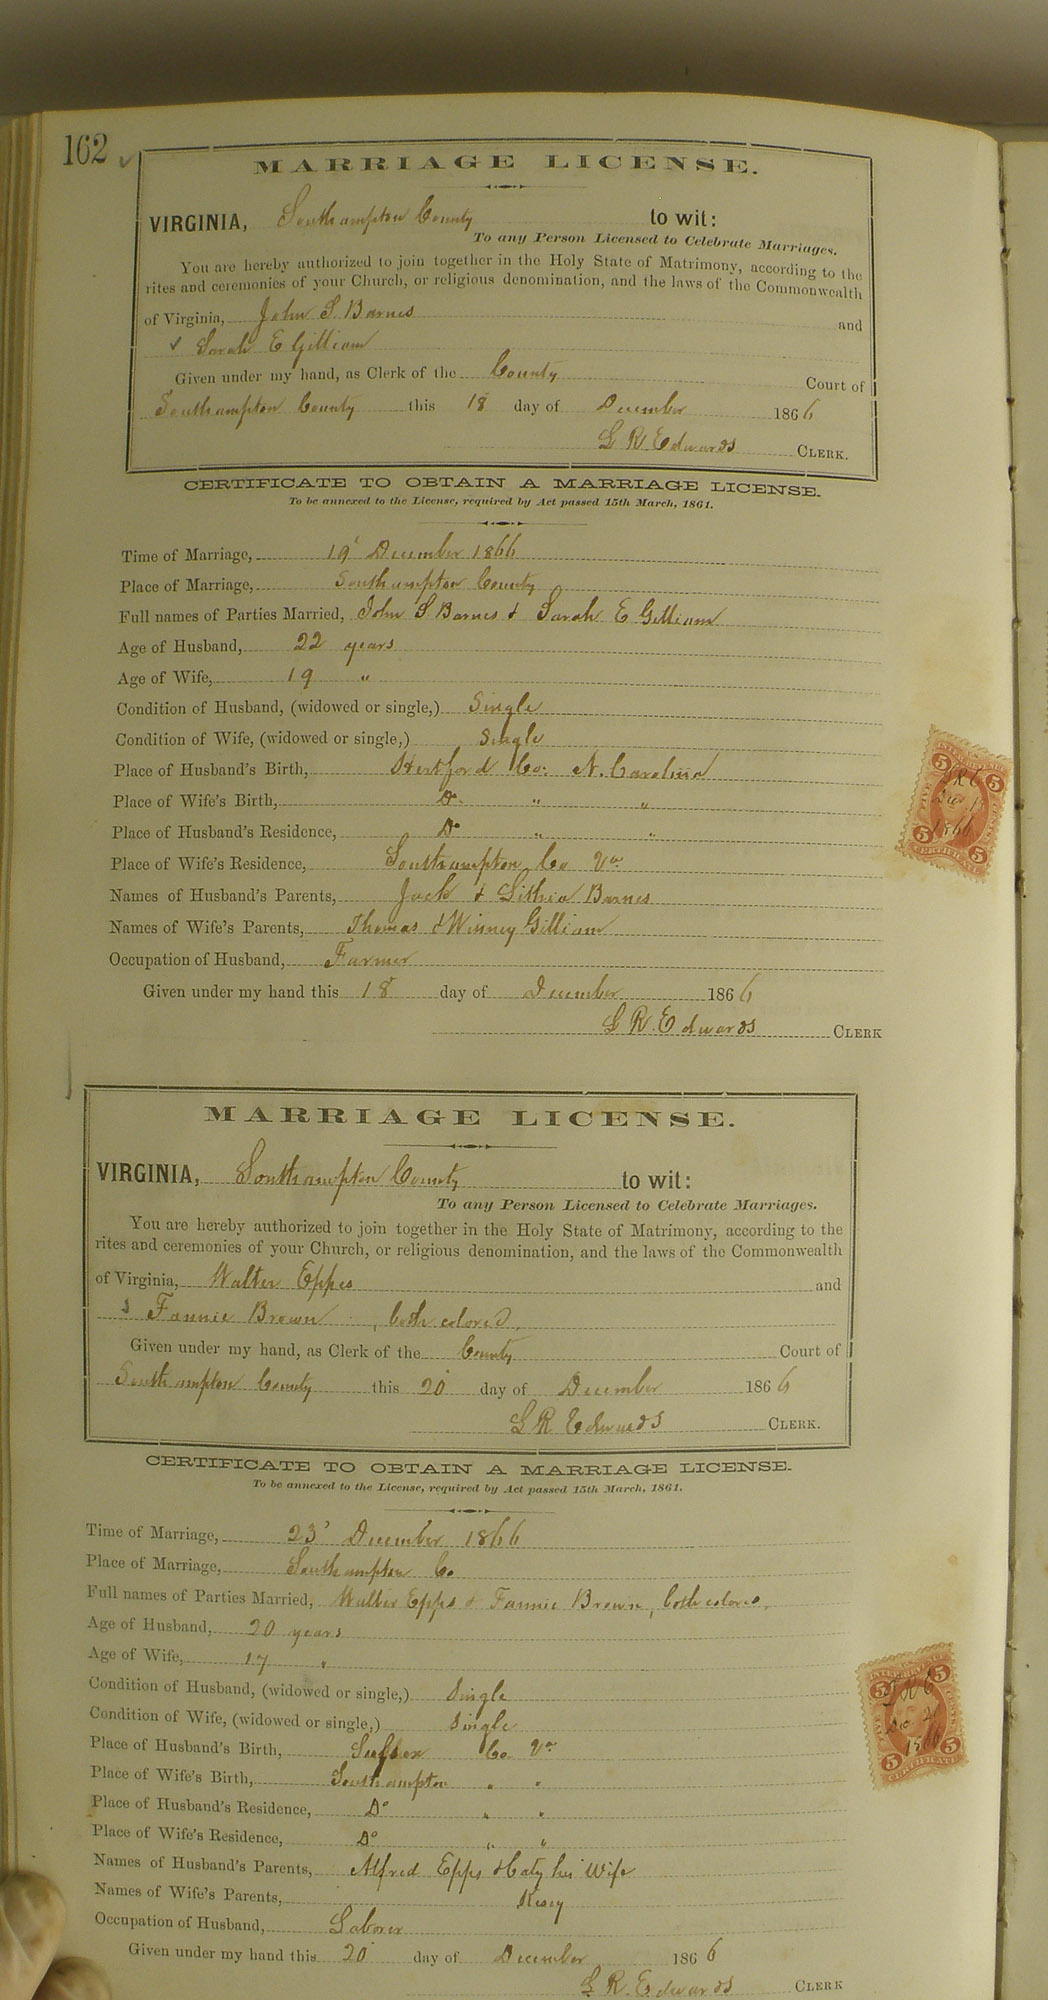 162
MARRIAGE LICENSE.
VIRGINIA, Southampton County to wit:
To any Person Licensed to Celebrate Marriages.
You are hereby authorized to join together in the Holy State of Matrimony, according to the
rites and ceremonies of your Church, or religious denomination, and the laws of the Commonwealth
of Virginia, John S. Barnes and
Sarah E Gilliam
Given under my hand, as Clerk of the County Court of
Southampton County this 18 day of December 1866
L R. Edwards CLERK.
CERTIFICATE TO OBTAIN A MARRIAGE LICENSE.
To be annexed to the License, required by Act passed 15th March, 1861.
Time of Marriage, 19' December 1866
Place of Marriage, Southampton County
Full names of Parties Married, John S Barnes & Sarah E Gilliam
Age of Husband, 22 years
Age of Wife, 19 "
Condition of Husband, (widowed or single,) Single
Condition of Wife, (widowed or single,) Single
Place of Husband's Birth, Hertford Co: N. Carolina
Place of Wife's Birth, Do " "
Place of Husband's Residence, Do " "
Place of Wife's Residence, Southampton Co Va
Names of Husband's Parents, Jack & Barnes
Names of Wife's Parents, Thomas & Winney Gilliam
Occupation of Husband, Farmer
Given under my hand this 18 day of December 1866
L R. Edwards CLERK
5 5
LRE
Dec 18
1866
5 5
CERTIFICATE
MARRIAGE LICENSE.
VIRGINIA, Southampton County to wit:
To any Person Licensed to Celebrate Marriages.
You are hereby authorized to join together in the Holy State of Matrimony, according to the
rites and ceremonies of your Church, or religious denomination, and the laws of the Commonwealth
of Virginia, Walter Epps and
Fannie Brown, both colored,
Given under my hand, as Clerk of the County Court of
Southampton County this 20 day of December 1866
L R Edwards CLERK.
CERTIFICATE TO OBTAIN A MARRIAGE LICENSE.
To be annexed to the License, required by Act passed 15th March, 1861.
Time of Marriage, 23' December 1866
Place of Marriage, Southampton Co
Full names of Parties Married, Walter Epps & Fannie Brown, both colored,
Age of Husband, 20 years
Age of Wife, 17 "
Condition of Husband, (widowed or single,) Single
Condition of Wife, (widowed or single,) Single
Place of Husband's Birth, Sussex Co Va
Place of Wife's Birth, Southampton " "
Place of Husband's Residence, Do " "
Place of Wife's Residence, Do " "
Names of Husband's Parents, Alfred Epps & Caty his Wife
Names of Wife's Parents,
Occupation of Husband, Laborer
Given under my hand this 20 day of December 1866
L R. Edwards CLERK
5 5
LRE
Dec 21
1866
5 5
CERTIFICATE